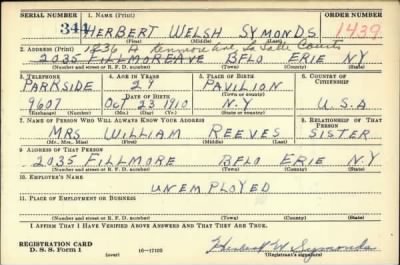 SERIAL NUMBER 1. NAME (Print) ORDER NUMBER
344 HERBERT WELSH SYMONDS 1439
(First) (Middle) (Last)
2. ADDRESS (Print) 1236 A Kenmore Ave La Salle Courts
2035 FILLMORE AVE BFLO ERIE N.Y
(Number and street or R. F. D. number) (Town) (County) (State)
3. TELEPHONE 4. AGE IN YEARS 5. PLACE OF BIRTH 6. COUNTRY OF CITIZENSHIP
PARKSIDE 29 PAVILION
DATE OF BIRTH (Town or county)
9607 Oct 23 1910 N.Y U.S.A
(Exchange) (Number) (Mo.) (Day) (Yr.) (State or country)
7. NAME OF PERSON WHO WILL ALWAYS KNOW YOUR ADDRESS 8. RELATIONSHIP OF THAT PERSON
MRS WILLIAM REEVES SISTER
(Mr., Mrs., Miss) (First) (Middle) (Last)
9. ADDRESS OF THAT PERSON
2035 FILLMORE BFLO ERIE N.Y
(Number and street or R. F. D. number) (Town) (County) (State)
10. EMPLOYER'S NAME
UNEMPLOYED
11. PLACE OF EMPLOYMENT OR BUSINESS
(Number and street or R. F. D. number) (Town) (County) (State)
I AFFIRM THAT I HAVE VERIFIED ABOVE ANSWERS AND THAT THEY ARE TRUE.
REGISTRATION CARD
D. S. S. Form 1 (over) 16—17105 Herbert W Symonds
(Registrant's signature)